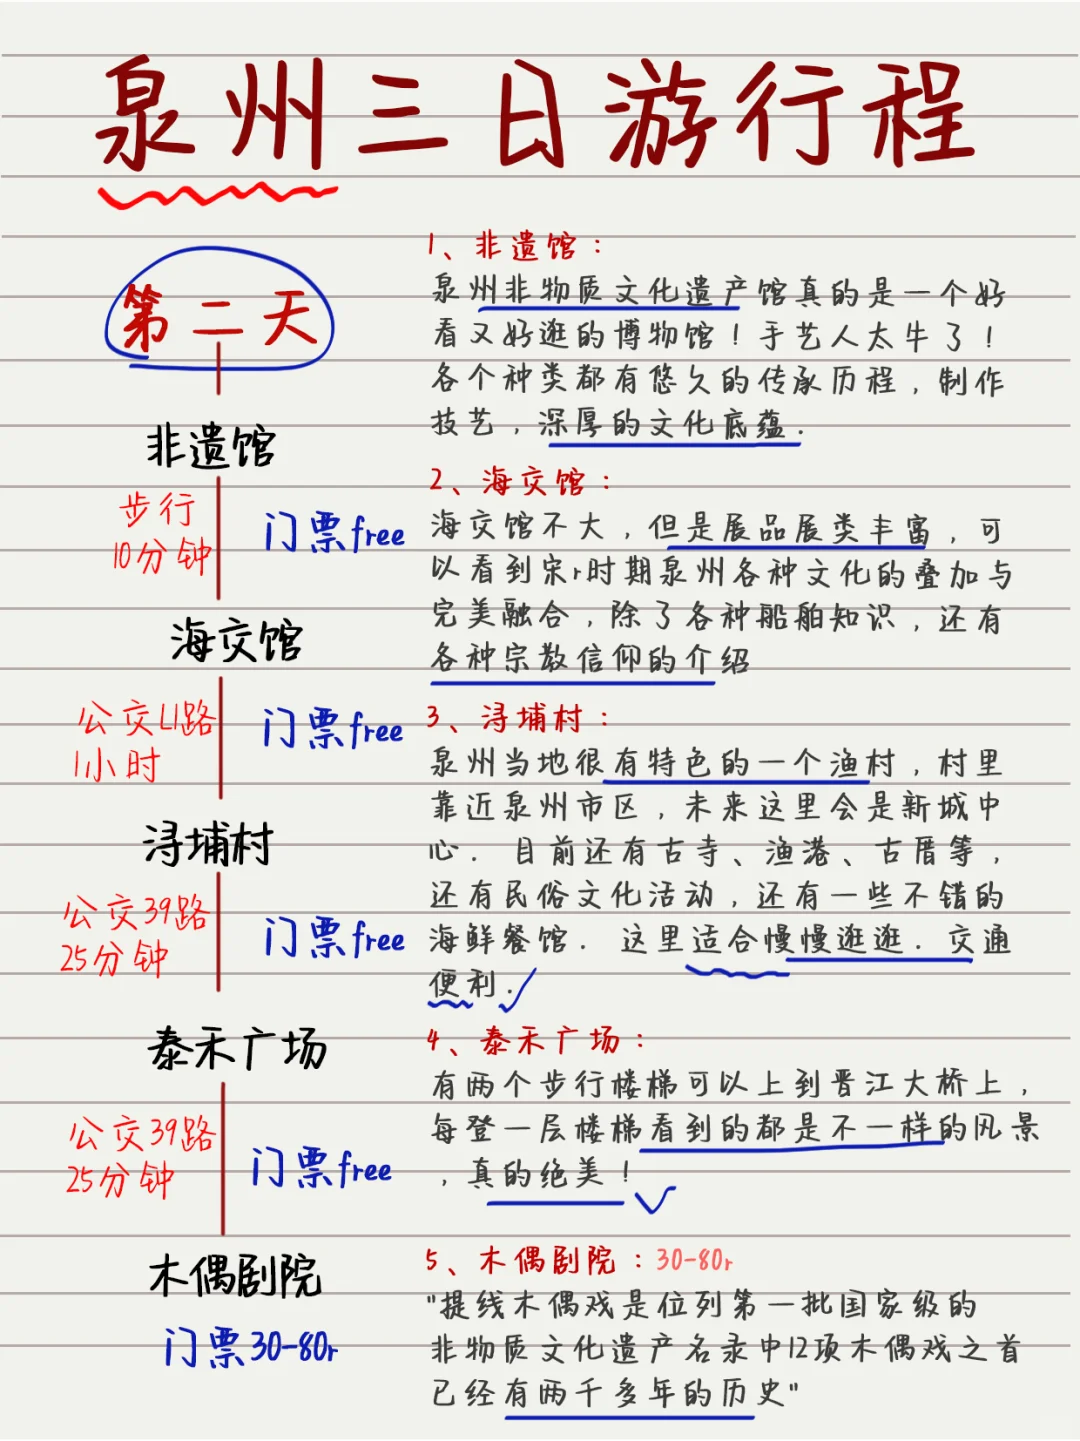 泉州三日游行程
第二天
非遗馆
步行
10分钟
门票free
海交馆
公交L1路
1小时
门票free
浔埔村
公交39路
25分钟
门票free
泰禾广场
公交39路
25分钟
门票free
木偶剧院
门票30-80r
1、非遗馆：
泉州非物质文化遗产馆真的是一个好
看又好逛的博物馆！手艺人太牛了！
各个种类都有悠久的传承历程，制作
技艺，深厚的文化底蕴.
2、海交馆：
海交馆不大，但是展品展类丰富，可
以看到宋r时期泉州各种文化的叠加与
完美融合，除了各种船舶知识，还有
各种宗教信仰的介绍
3、浔埔村：
泉州当地很有特色的一个渔村，村里
靠近泉州市区，未来这里会是新城中
心. 目前还有古寺、渔港、古厝等，
还有民俗文化活动，还有一些不错的
海鲜餐馆. 这里适合慢慢逛逛. 交通
便利.
4、泰禾广场：
有两个步行楼梯可以上到晋江大桥上，
每登一层楼梯看到的都是不一样的风景
，真的绝美！
5、木偶剧院：30-80r
"提线木偶戏是位列第一批国家级的
非物质文化遗产名录中12项木偶戏之首
已经有两千多年的历史"